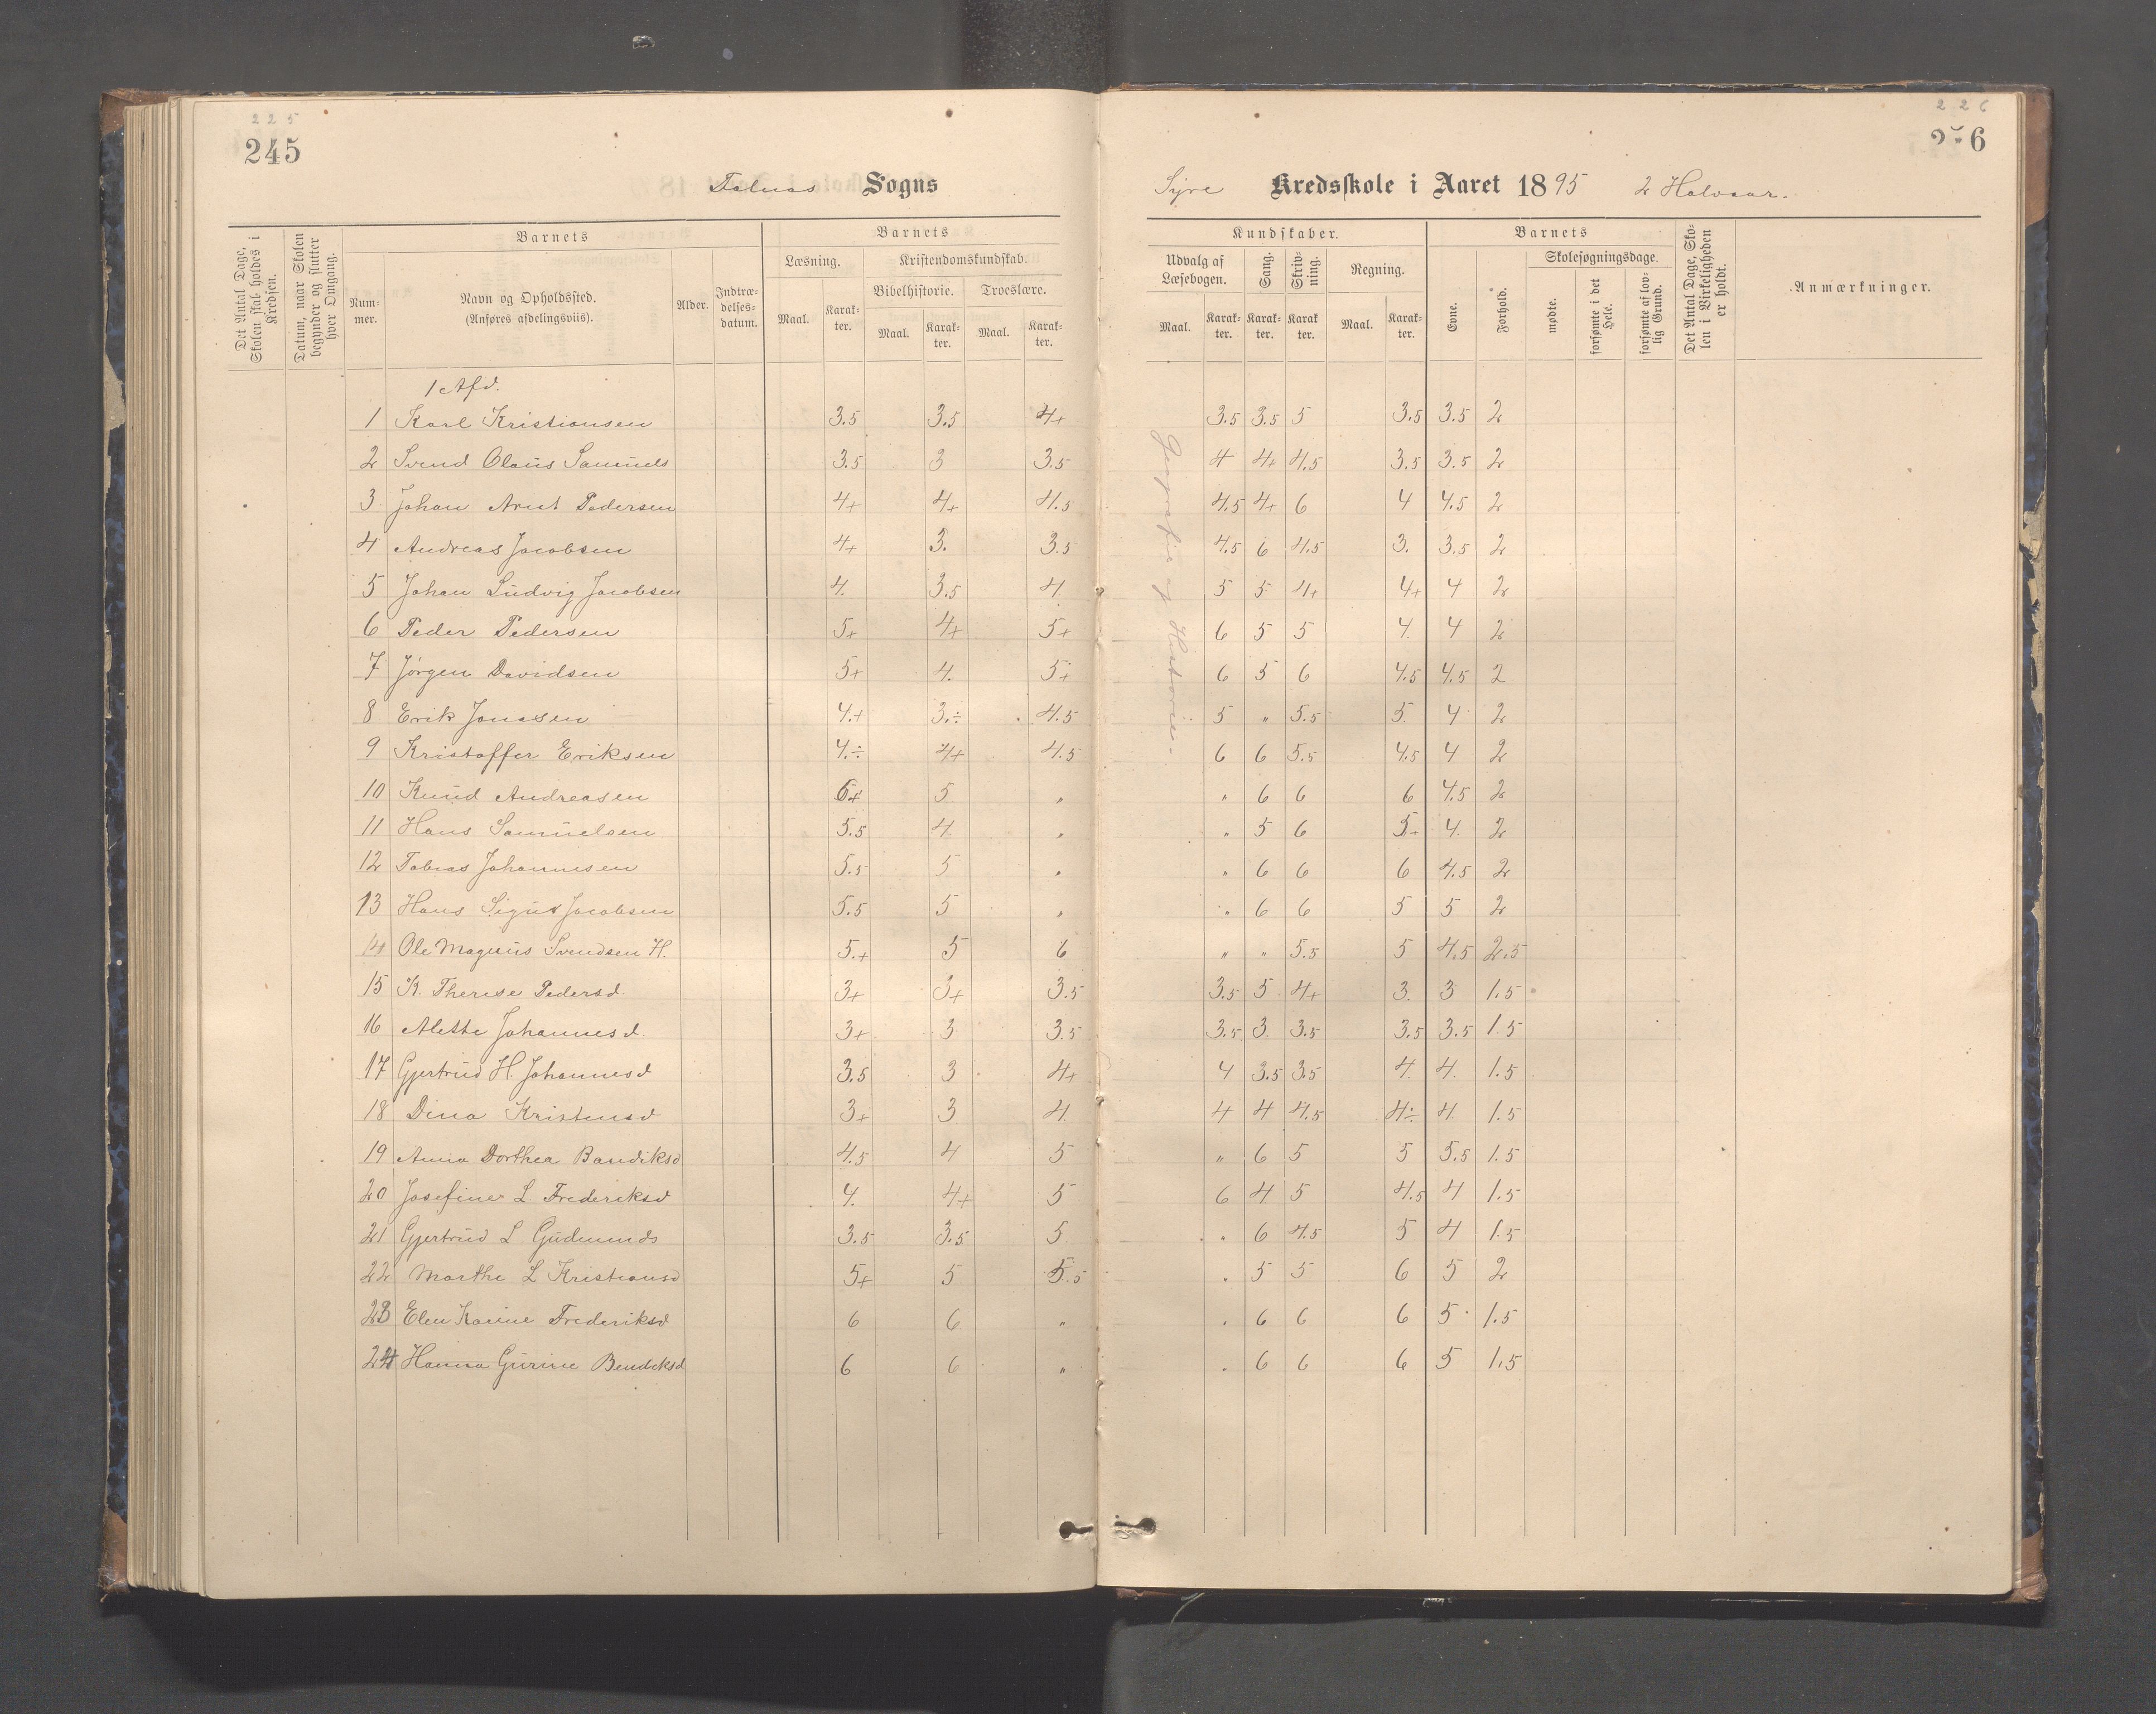 225
245
Falnes Sogns
Det Antal Dage, Skolen skal holdes i Kredsen.
Datum, naar Skolen begynder og slutter hver Omgang.
Barnets
Nummer.
Navn og Opholdssted.
(Anføres afdelingsviis).
Alder.
Indtrædelsesdatum.
Barnets
Læsning.
Maal.
Karakter.
Kristendomskundskab.
Bibelhistorie.
Maal.
Karakter.
Troeslære.
Maal.
Karakter.
1 Afd.
1 Karl Kristiansen 3.5 3.5 4+
2 Svend Olaus Samuels 3.5 3 3.5
3 Johan Arnt Pedersen 4+ 4+ 4.5
4 Andreas Jacobsen 4+ 3. 3.5
5 Johan Ludvig Jacobsen 4. 3.5 4
6 Peder Pedersen 5+ 4+ 5+
7 Jørgen Davidsen 5+ 4. 5+
8 Erik Jonasen 4.+ 3.÷ 4.5
9 Kristoffer Eriksen 4.÷ 4+ 4.5
10 Knud Andreasen 6+ 5 "
11 Hans Samuelsen 5.5 4. "
12 Tobias Johannesen 5.5 5 "
13 Hans Jacobsen 5.5 5 "
14 Ole Magnus Svendsen H. 5.+ 5 6
15 K. Therese Pedersd. 3+ 3+ 3.5
16 Alette Johannesd. 3+ 3 3.5
17 Gjertrud H. Johannesd 3.5 3 4+
18 Dina Kristensd 3+ 3 4.
19 Anna Dorthea Bendiksd 4.5 4 5
20 Josefine L Frederiksd 4. 4+ 5
21 Gjertrud L Gudmunds 3.5 3.5 5
22 Marthe L Kristiansd 5+ 5 5.5
23 Elen Karine Frederiksd 6 6 "
24 Hanna Gurine Bendiksd 6 6 "
226
6
Syre Kredsskole i Aaret 1895 2 Halvaar.
Kundskaber.
Udvalg af Læsebogen.
Maal.
Karakter.
Sang.
Karakter.
Skrivning.
Karakter.
Regning.
Maal.
Karakter.
Barnets
Evne.
Forhold.
Skolesøgningsdage.
mødte.
forsømte i det Hele.
forsømte af lovlig Grund.
Det Antal Dage, Skolen i Virkeligheden er holdt.
Anmærkninger.
Geografie og Historie.
3.5 3.5 5 3.5 3.5 2
4 4+ 4.5 3.5 3.5 2
4.5 4+ 6 4 4.5 2
4.5 6 4.5 3. 3.5 2
5 5 4+ 4+ 4 2
6 5 5 4. 4 2
6 5 6 4.5 4.5 2
5 " 5.5 5. 4 2
6 6 5.5 4.5 4 2
" 6 6 6 4.5 2
" 5 6 5+ 4. 2
" 6 6 6 4.5 2
" 6 6 5 5 2
" " 5.5 5 4.5 2.5
3.5 5 4+ 3. 3 1.5
3.5 3. 3.5 3.5 3.5 1.5
4 3.5 3.5 4. 4. 1.5
4 4 4.5 4÷ 4. 1.5
" 6 5 5 5.5 1.5
6 4 5 4.5 4 1.5
" 6 4.5 5 4 1.5
" 5 5 6 5 2
" 6 6 6 5 1.5
" 6 6 6 5 1.5